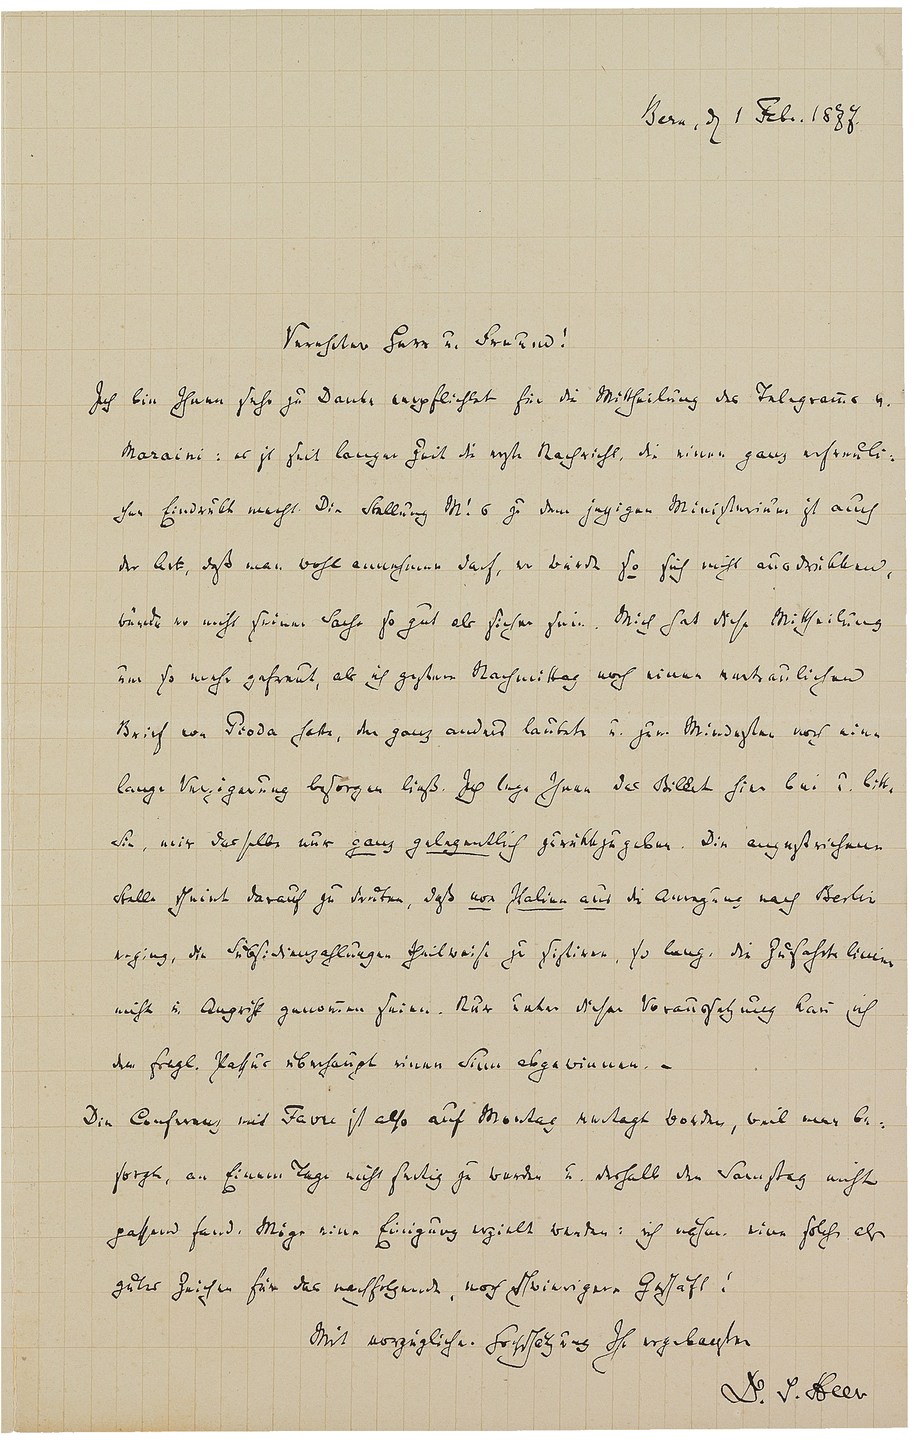 Bern, d. 1 Febr. 1877.
Verehrter Herr u. Freund!
Ich bin Ihnen sehr zu Danke verpflichtet für die Mittheilung des Telegrams v.
Maraini: es ist seit langer Zeit die erste Nachricht, die einen ganz erfreuli-
chen Eindrukk macht. Die Stellung M's zu dem jezigen Ministerium ist auch
der Art, daß man wohl annehmen darf, er würde so sich nicht ausdrükken,
würde er nicht seiner Sache so gut als sicher sein. Mich hat diese Mittheilung
um so mehr gefreut, als ich gestern Nachmittag noch einen vertraulichen
Brief von Pioda hatte, der ganz anders lautete u. zum Mindesten noch eine
lange Verzögerung besorgen ließ. Ich lege Ihnen das Billet hier bei u. bitte
Sie, mir dasselbe nur ganz gelegentlich zurükkzugeben. Die angestrichene
Stelle scheint darauf zu deuten, daß von Italien aus die Anregung nach Berlin
erging, die Subsidienzahlungen theilweise zu sistiren, so lang. die Zufahrtslinien
nicht in Angriff genomen seien. Nur unter dieser Voraussetzung kan ich
dem fragl. Passus überhaupt einen Sinn abgewinnen. –
Die Conferenz mit Favre ist also auf Montag vertagt worden, weil man be-
sorgte, an Einem Tage nicht fertig zu werden u. deshalb den Samstag nicht
passend fand. Möge eine Einigung erzielt werden: ich nähme eine solche als
gutes Zeichen für das nachfolgende, noch schwierigere Geschäft!
Mit vorzüglicher Hochschätzung Ihr ergebenster
Dr. J. Heer